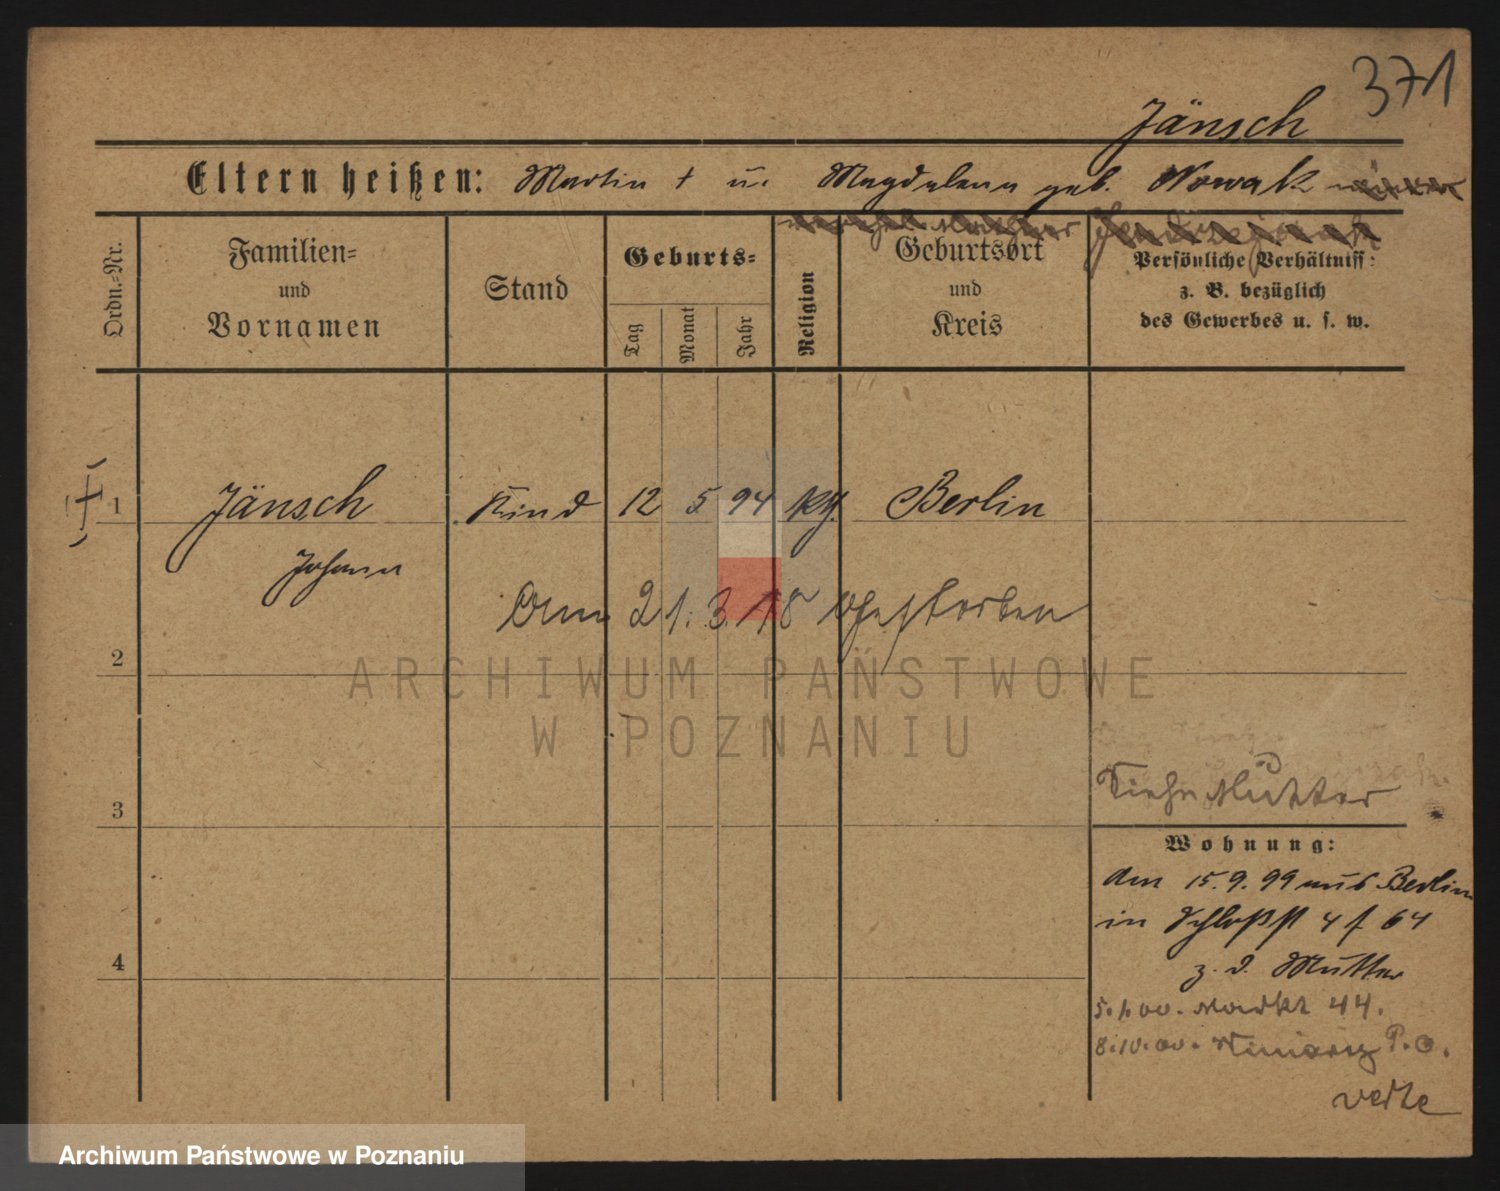 371
Jänsch
Eltern heißen: Martin † u. Magdalena geb. Nowak
Ordn.-Nr.
Familien-
und
Vornamen
Stand
Geburts-
Tag
Monat
Jahr
Religion
Geburtsort
und
Kreis
Persönliche Verhältniss:
z. B. bezüglich
des Gewerbes u. s. w.
1 Jänsch Kind 12 5 94 kth. Berlin
Johann
Am 21.3.18 Gestorben
2
ARCHIWUM PAŃSTWOWE
W POZNANIU
Siehe Mutter
3
Wohnung:
Am 15.9.99 aus Berlin
in Schloßst 4 f 64
4
z. d. Mutter
5.1.00. Markt 44.
8.10.00. P. O.
verte
Archiwum Państwowe w Poznaniu